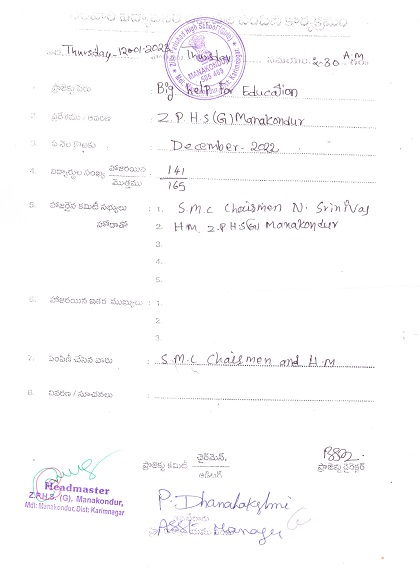 Thursday - 12-01-2023 Thursday సమయం: 2-30 A.M
Zilla Parishad High School (Girls)
MANAKONDUR
505 469
1. ప్రాజెక్టు పేరు : Big Help For Education
2. ప్రదేశము - ఆవరణ : Z.P.H.S (G) Manakondur
3. ఏ నెల కొఱకు : December - 2022
4. విద్యార్థుల సంఖ్య హాజరయిన : 141
మొత్తము 165
5. హాజరైన కమిటీ సభ్యులు : 1. S.M.C Chairmen N. Srinivas
హోదాతో 2. HM. Z.P.H.S(G) Manakondur
3.
4.
5.
6. హాజరయిన ఇతర ముఖ్యులు : 1.
2.
3.
7. పంపిణీ చేసిన వారు : S.M.C Chairmen and H.M
8. వివరణ / సూచనలు :
Headmaster
Z.P.H.S. (G), Manakondur,
Mdl: Manakondur, Dist: Karimnagar
ప్రాజెక్టు కమిటీ చైర్‌మెన్.
ఆడిటర్
ప్రాజెక్టు డైరెక్టర్
P. Dhanalakshmi
Asst. Manager